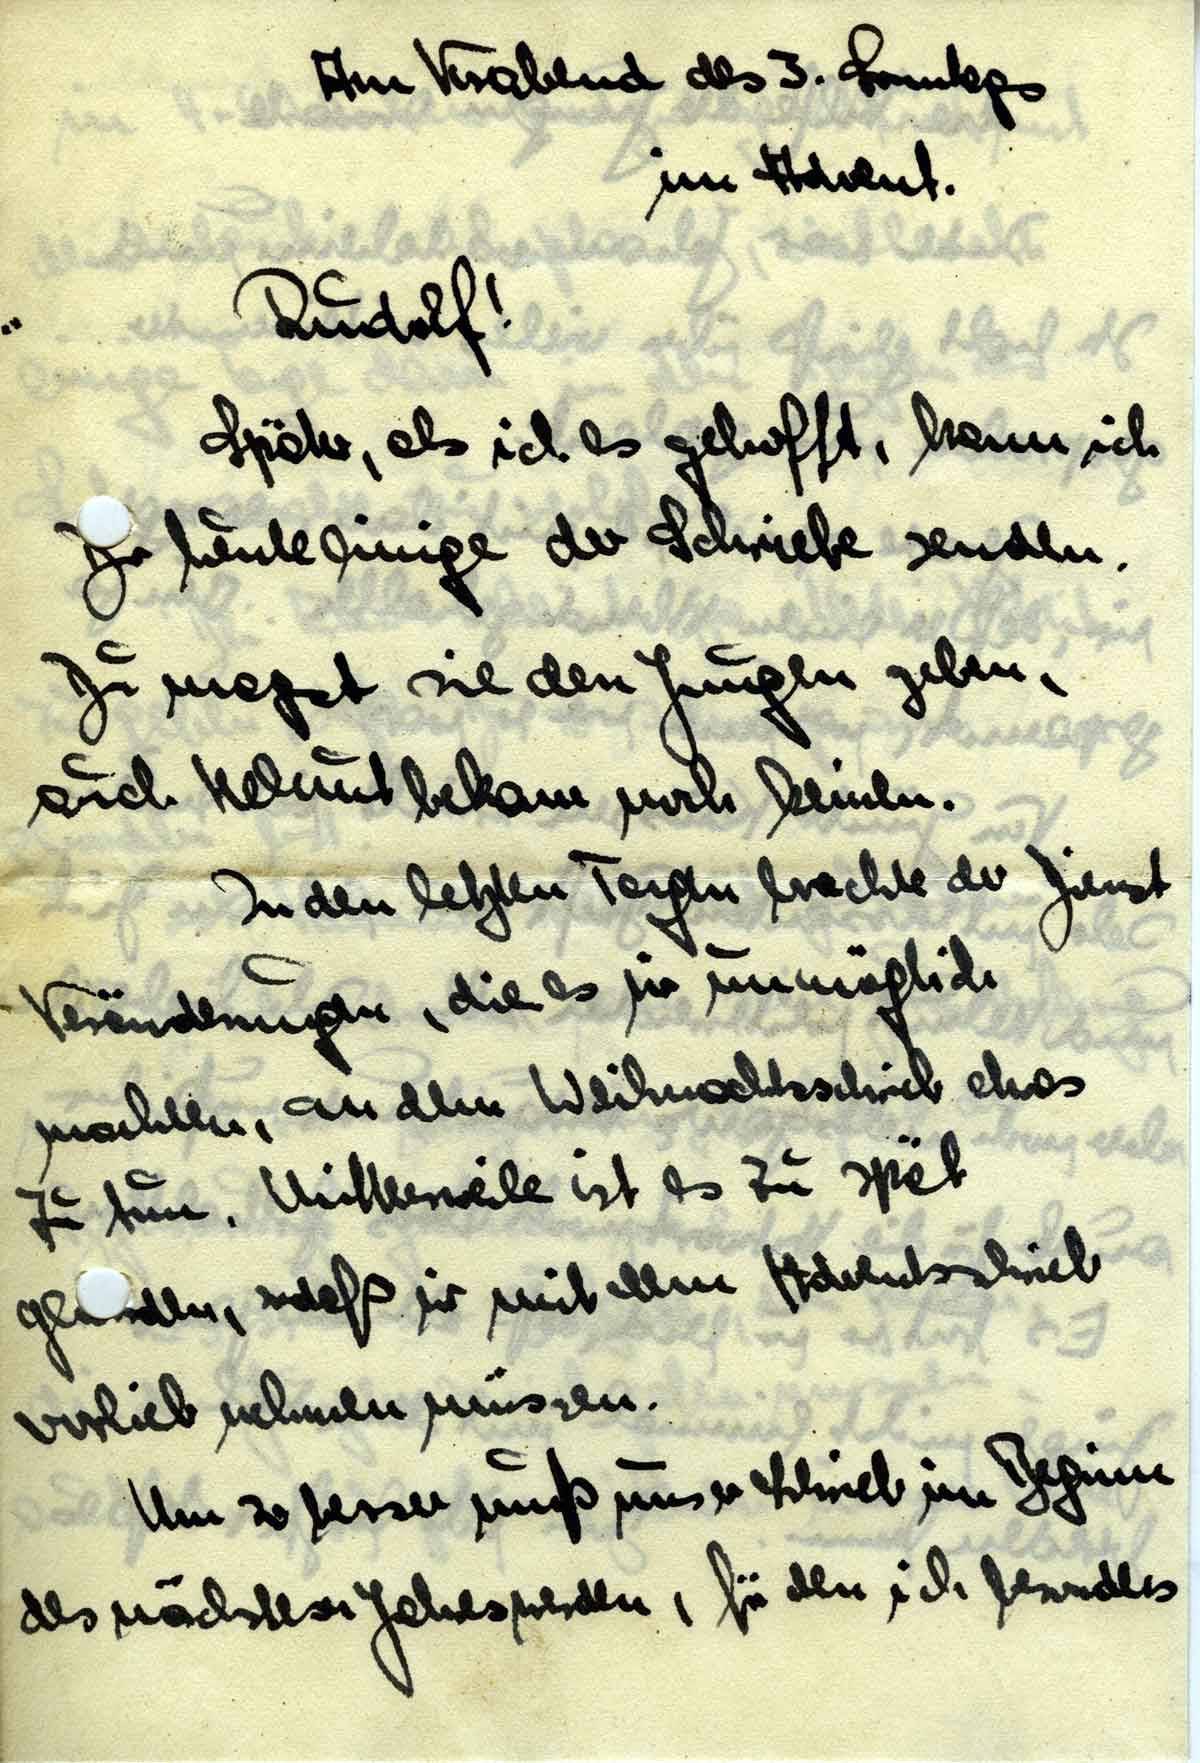 Am Vorabend des 3. Sonntags
im Advent.
Rudolf!
Später, als ich es gehofft, kann ich
Dir heute einige der Schriebe senden.
Du magst sie den Jungen geben,
auch Helmut bekam noch keinen.
In den letzten Tagen brachte der Dienst
Veränderungen, die es mir unmöglich
machten, an dem Weihnachtsschrieb etwas
zu tun. Mittlerweile ist es zu spät
geworden, sodaß wir mit dem Adventsschrieb
vorlieb nehmen müssen.
Um so besser muß unser Schrieb im Beginn
des nächsten Jahres werden, für den ich besonders